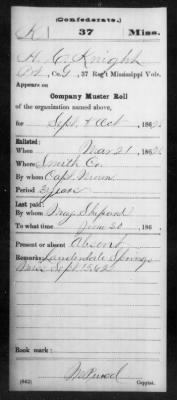 (Confederate.)
K 37 Miss.
H. C. Knight
Pvt., Co. G, 37 Reg't Mississippi Vols.
Appears on
Company Muster Roll
of the organization named above,
for Sept. & Oct., 1862.
Enlisted:
When Mar 21, 1862.
Where Smith Co.
By whom Capt.
Period 3 years
Last paid:
By whom Maj. Shepard
To what time June 30, 186
Present or absent Absent
Remarks: Lauderdale Springs
Miss Sept 15 62
Book mark:
(642) Copyist.